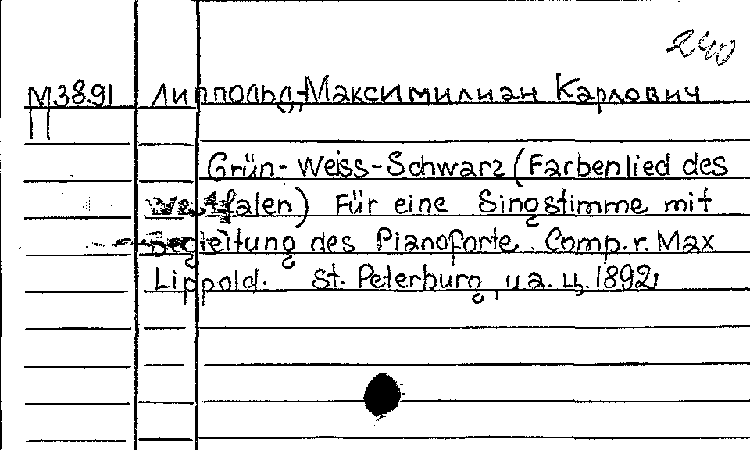 240
М38.91 Липпольд, Максимилиан Карлович
П
Grün-Weiss-Schwarz (Farbenlied des
Westfalen) Für eine Singstimme mit
Begleitung des Pianoforte. Comp. r. Max
Lippold. St. Peterburg, ц. 1892,